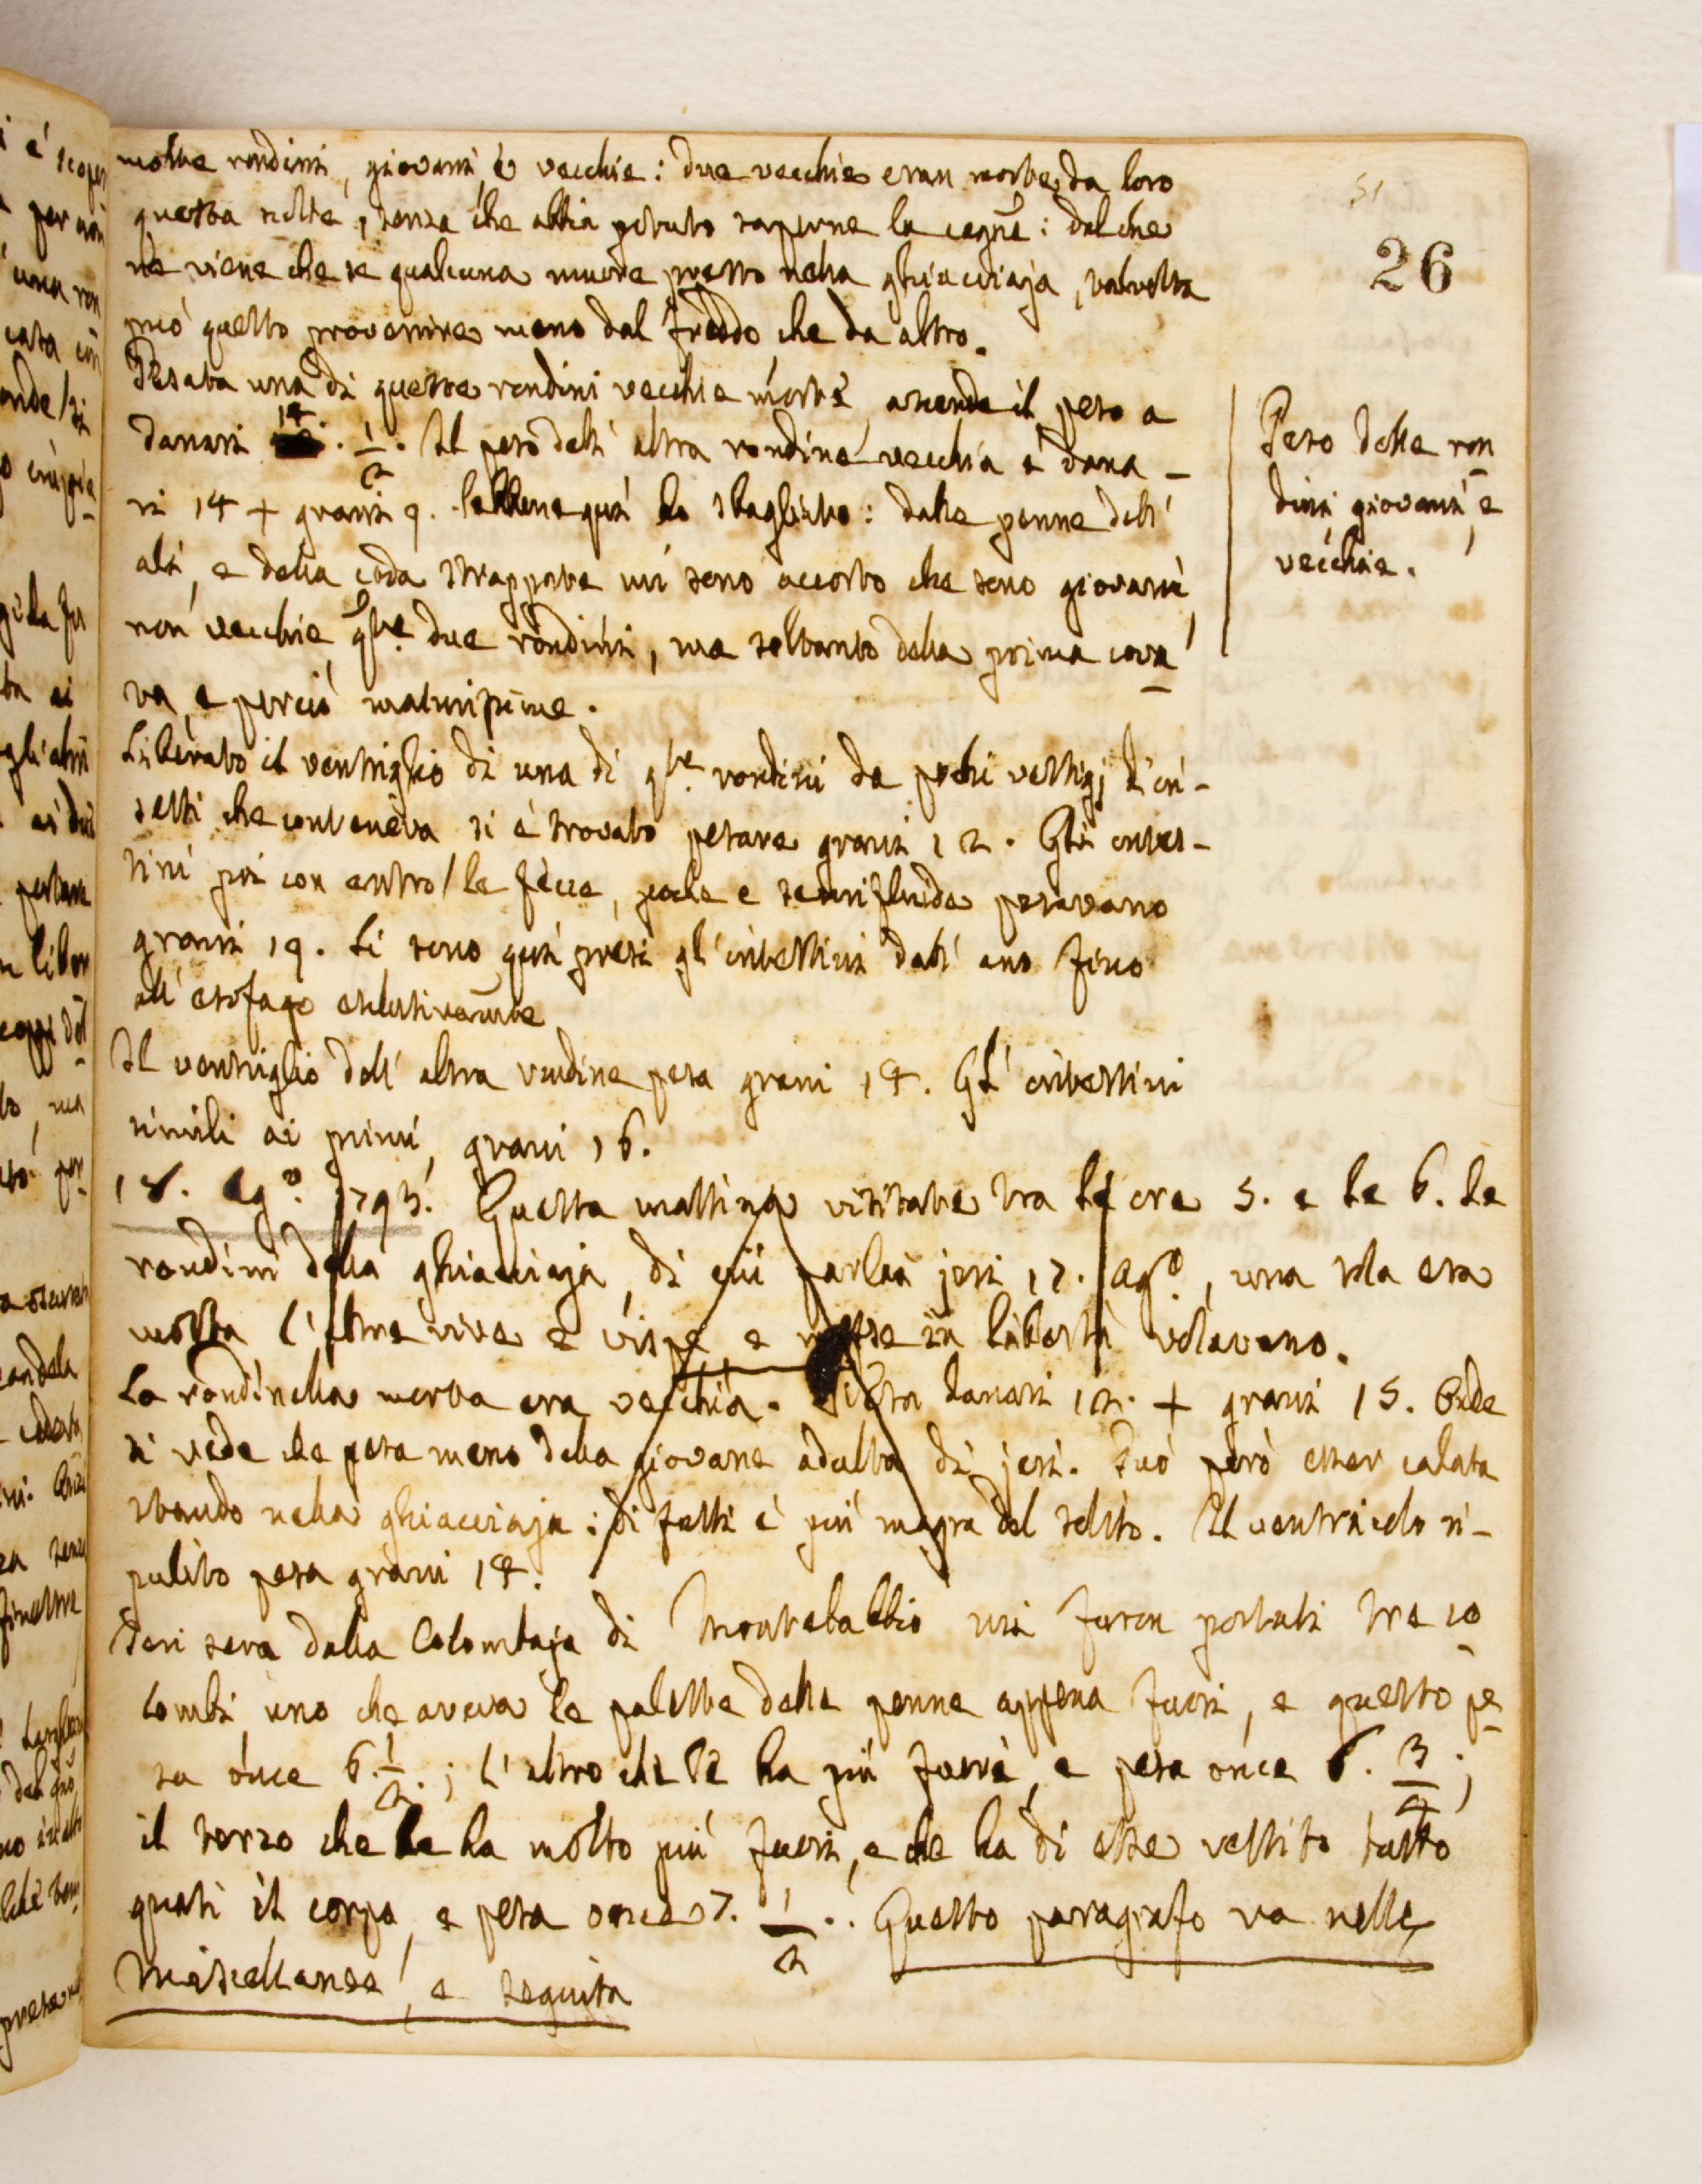 51
26
molte rondini, giovani, e vecchie: due vecchie eran morte da loro
questa notte, senza che abbia potuto saperne la cagne: dal che
ne viene che se qualcuna muore presto nella ghiacciaja, talvolta
può questo provenire meno dal freddo che da altro.
Pesata una di queste rondini vecchie morte, ascende il peso a
danari 14. 1/2. Il peso dell' altra rondine vecchia è dana-
ri 14 + grani 9. Sebbene qui ho sbagliato: dalle penne dell'
ali, e della coda strappate mi sono accorto che sono giovani,
non vecchie qte. due rondini, ma soltanto della prima cova-
va, e perciò maturissime.
Peso delle ron-
dini giovani, e
vecchie.
Liberato il ventriglio di una di qte. rondini da pochi vestigj d'in-
setti che conteneva si è trovato pesare grani 12. Gli intes-
tini poi con entro le fecce, poche e semifluide pesavano
grani 19. Si sono qui presi gl' intestini dall' ano fino
all' esofago esclusivamente
Il ventriglio dell' altra rondine pesa grani 14. Gl' intestini
simili ai primi, grani 16.
18. Ago. 1793. Questa mattina visitate tra le ore 5. e le 6. le
rondini della ghiacciaja, di cui parlai jeri 17. Ago., una sola era
morta, l'altre vive e vispe, e messe in libertà volavano.
La rondinella morta era vecchia. Pesa danari 12. + grani 15. Onde
si vede che pesa meno della giovane adulta di jeri. Può però esser calata
stando nella ghiacciaja: di fatti è più magra del solito. Il ventricolo ri-
pulito pesa grani 14.
Jeri sera dalla Colombaja di Montebabbio mi furon portati tre co-
lombi, uno che aveva le palette delle penne appena fuori, e questo pe-
sa once 6. 1/2.; l'altro che le ha più fuori, e pesa once 6. 3/4.;
il terzo che le ha molto più fuori, e che ha di esse vestito tutto
quasi il corpo, e pesa once 7. 1/2.. Questo paragrafo va nelle
Miscellanee, e seguita